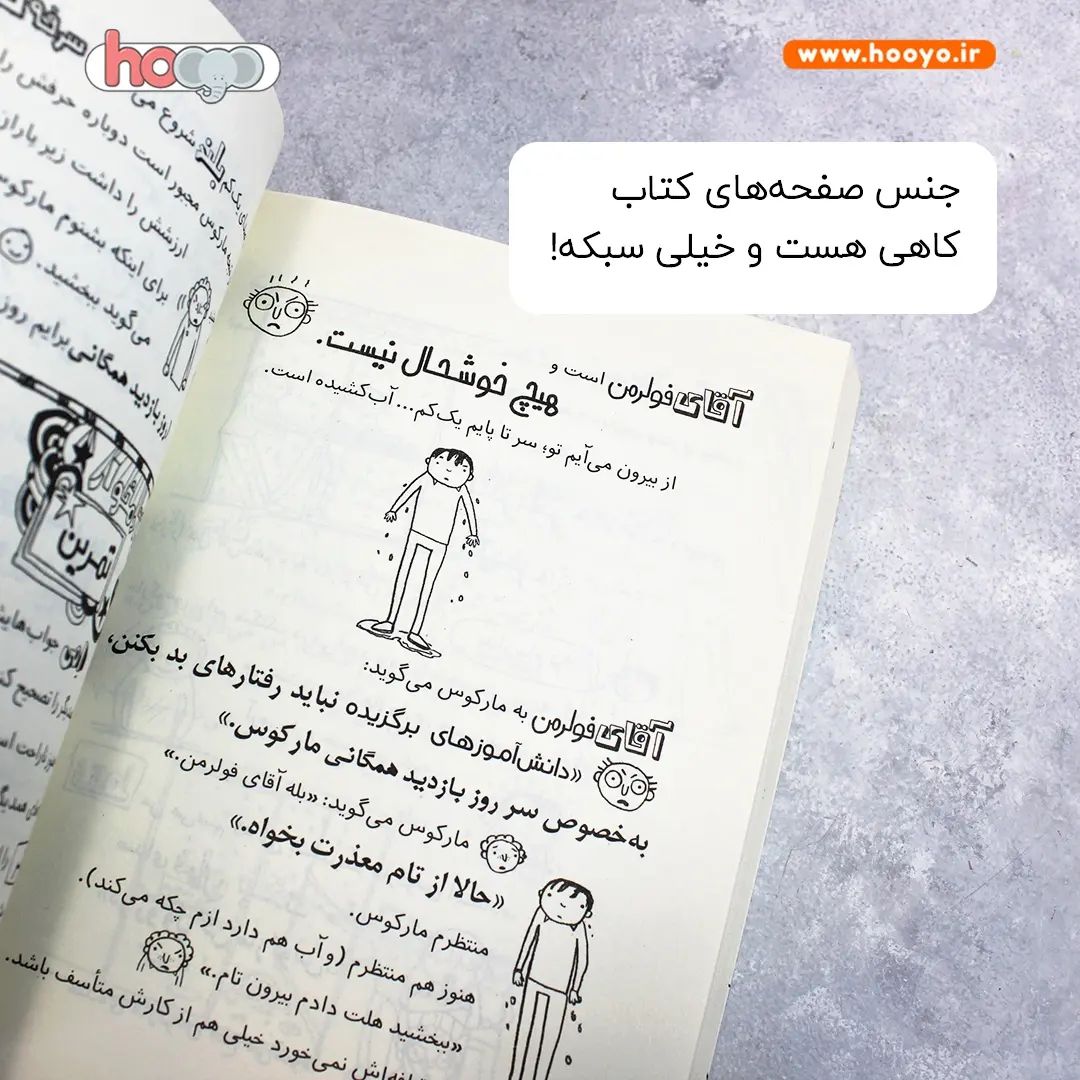 hooyo
www.hooyo.ir
جنس صفحه‌های کتاب
کاهی هست و خیلی سبکه!
سرفه
یک‌کم بلند شروع می
مارکوس مجبور است دوباره حرفش را
ارزشش را داشت زیر باران
برای اینکه بشنوم مارکوس
می‌گوید ببخشید.
روز بازدید همگانی برایم روز
تمرین
جواب‌هایش
را تصحیح کند
آقای فولرمن است و
هیچ خوشحال نیست.
از بیرون می‌آیم تو؛ سر تا پایم یک‌کم... آب‌کشیده است.
آقای فولرمن به مارکوس می‌گوید:
«دانش‌آموزهای برگزیده نباید رفتارهای بد بکنن،
به‌خصوص سر روز بازدید همگانی مارکوس.»
مارکوس می‌گوید: «بله آقای فولرمن.»
«حالا از تام معذرت بخواه.»
منتظرم مارکوس.
هنوز هم منتظرم (و آب هم دارد ازم چکه می‌کند).
«ببخشید هلت دادم بیرون تام.»
نمی‌خورد خیلی هم از کارش متأسف باشد.